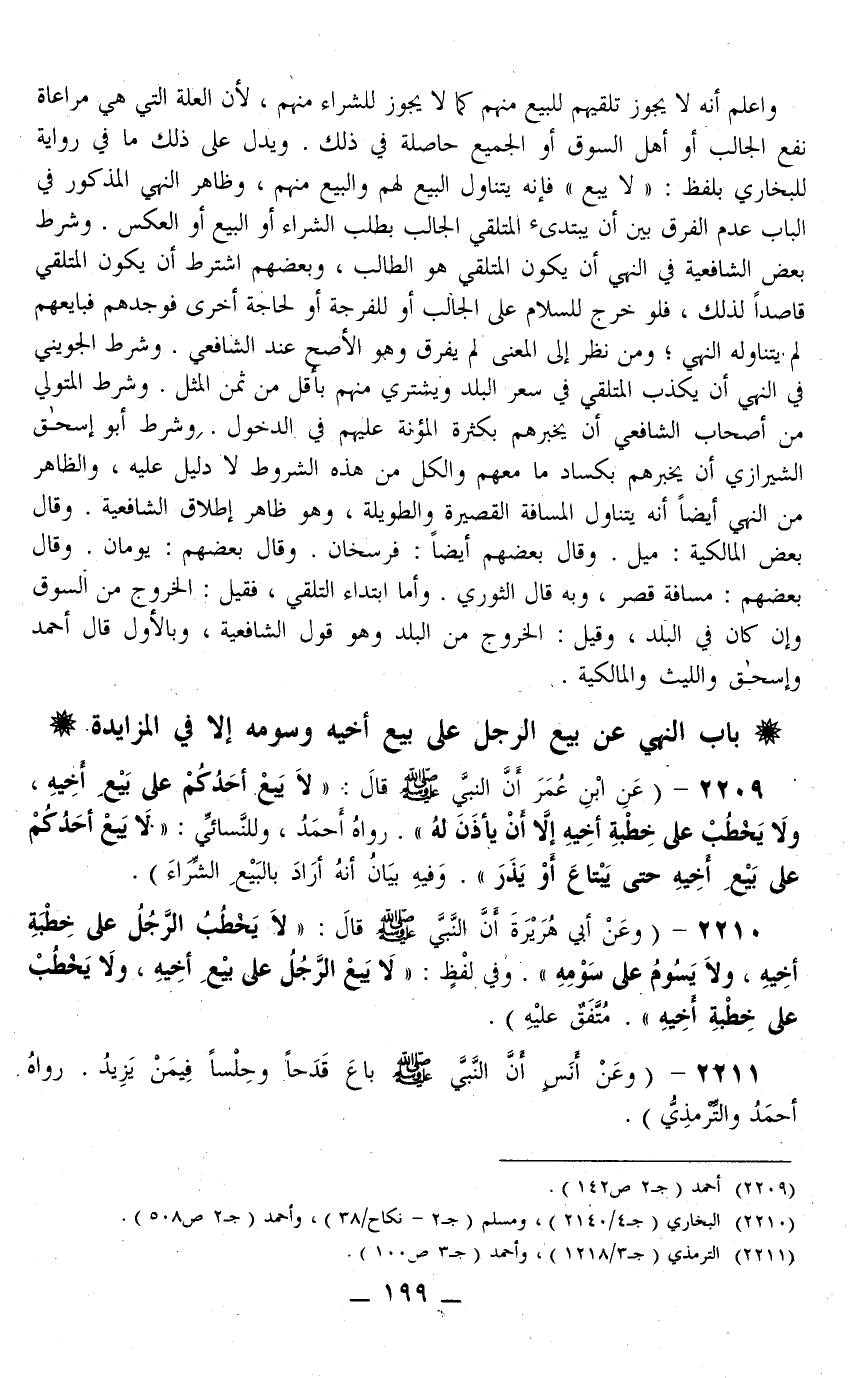 واعلم أنه لا يجوز تلقيهم للبيع منهم كما لا يجوز للشراء منهم ، لأن العلة التي هي مراعاة
نفع الجالب أو أهل السوق أو الجميع حاصلة في ذلك . ويدل على ذلك ما في رواية
للبخاري بلفظ : « لا يبع » فإنه يتناول البيع لهم والبيع منهم ، وظاهر النهي المذكور في
الباب عدم الفرق بين أن يبتدىء المتلقي الجالب بطلب الشراء أو البيع أو العكس . وشرط
بعض الشافعية في النهي أن يكون المتلقي هو الطالب ، وبعضهم اشترط أن يكون المتلقي
قاصداً لذلك ، فلو خرج للسلام على الجالب أو للفرجة أو لحاجة أخرى فوجدهم فبايعهم
لم يتناوله النهي ؛ ومن نظر إلى المعنى لم يفرق وهو الأصح عند الشافعي . وشرط الجويني
في النهي أن يكذب المتلقي في سعر البلد ويشتري منهم بأقل من ثمن المثل . وشرط المتولي
من أصحاب الشافعي أن يخبرهم بكثرة المؤنة عليهم في الدخول . وشرط أبو إسحٰق
الشيرازي أن يخبرهم بكساد ما معهم والكل من هذه الشروط لا دليل عليه ، والظاهر
من النهي أيضاً أنه يتناول المسافة القصيرة والطويلة ، وهو ظاهر إطلاق الشافعية . وقال
بعض المالكية : ميل . وقال بعضهم أيضاً : فرسخان . وقال بعضهم : يومان . وقال
بعضهم : مسافة قصر ، وبه قال الثوري . وأما ابتداء التلقي ، فقيل : الخروج من السوق
وإن كان في البلد ، وقيل : الخروج من البلد وهو قول الشافعية ، وبالأول قال أحمد
وإسحٰق والليث والمالكية .
باب النهي عن بيع الرجل على بيع أخيه وسومه إلا في المزايدة
٢٢٠٩ - ( عَنِ ابْنِ عُمَرَ أَنَّ النبيَّ ﷺ قالَ : « لاَ يَبعْ أحَدُكُمْ على بَيْعِ أَخِيهِ ،
ولا يَخْطُبْ على خِطْبةِ أخِيهِ إلَّا أنْ يأذَنَ لهُ » . رواهُ أَحمَدُ ، وللنَّسائيِّ : « لَا يَبعْ أحَدُكُمْ
على بَيْعِ أَخِيهِ حتى يَبْتاعَ أَوْ يَذَرَ » . وَفيهِ بيَانُ أنهُ أرَادَ بالبَيْعِ الشِّرَاءَ ) .
٢٢١٠ - ( وعَنْ أبي هُرَيْرَةَ أَنَّ النَّبيَّ ﷺ قالَ : « لاَ يَخْطُبُ الرَّجُلُ على خِطْبةِ
أخِيهِ ، ولاَ يَسُومُ على سَوْمِهِ » . وَفي لفْظٍ : « لَا يَبعْ الرَّجُلُ على بيْعِ أخِيهِ ، ولَا يَخْطُبْ
على خِطْبةِ أَخِيهِ » . مُتَّفَقٌ عليْهِ ) .
٢٢١١ - ( وعَنْ أَنَسٍ أَنَّ النَّبيَّ ﷺ باعَ قَدَحاً وحِلْساً فِيمَنْ يَزِيدُ . رواهُ
أحمَدُ والتِّرْمذِيُّ ) .
(٢٢٠٩) أحمد ( جـ٢ ص١٤٢ ) .
(٢٢١٠) البخاري ( جـ٢١٤٠/٤ ) ، ومسلم ( جـ٢ - نكاح/٣٨ ) ، وأحمد ( جـ٢ ص٥٠٨ ) .
(٢٢١١) الترمذي ( جـ١٢١٨/٣ ) ، وأحمد ( جـ٣ ص١٠٠ ) .
ــ ١٩٩ ــ